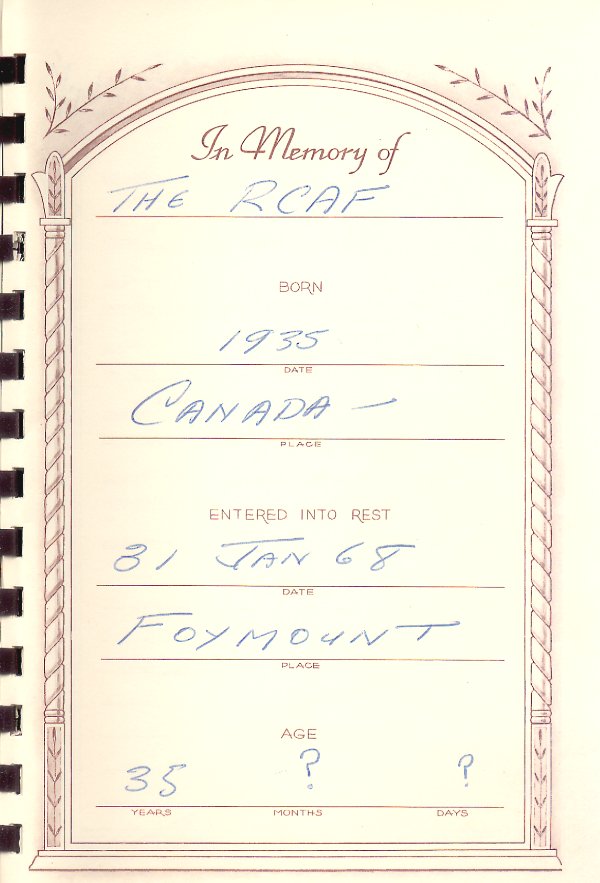 In Memory of
THE RCAF
BORN
1935
DATE
CANADA —
PLACE
ENTERED INTO REST
31 JAN 68
DATE
FOYMOUNT
PLACE
AGE
35 ? ?
YEARS MONTHS DAYS